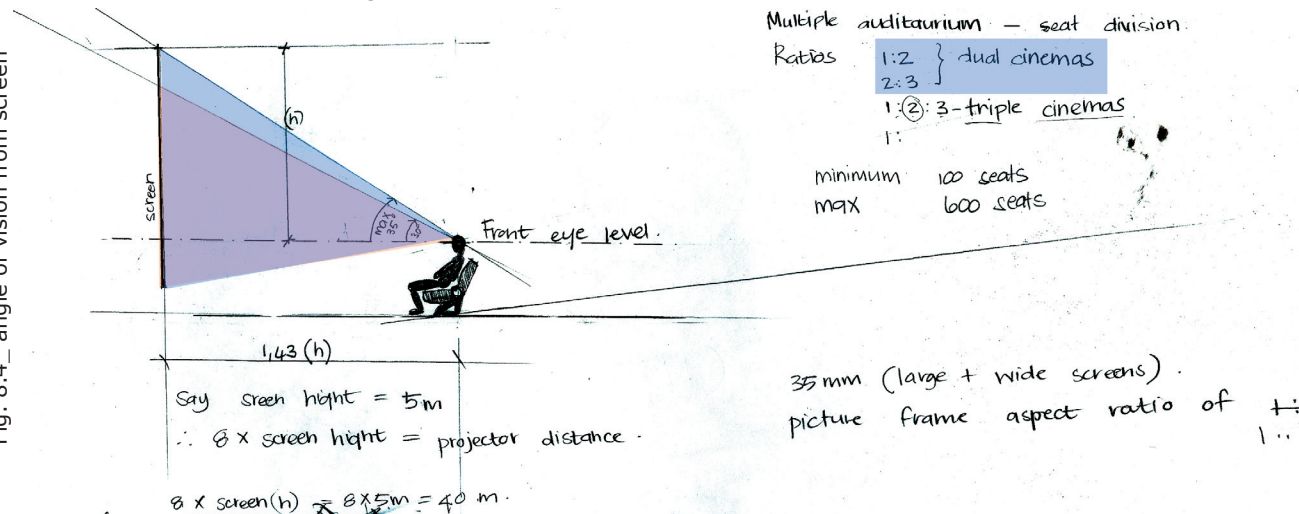 Fig. 8.4_ angle of vision from screen
(h)
screen
max 35°
30°
Front eye level.
1,43 (h)
Say sreen hight = 5m
∴ 8 x screen hight = projector distance.
8 x screen(h) = 8x5m = 40 m.
Multiple auditaurium - seat division.
Ratios 1:2 } dual cinemas
2:3
1:2:3 - triple cinemas
1:
minimum 100 seats
max 600 seats
35 mm (large + wide screens).
picture frame aspect ratio of